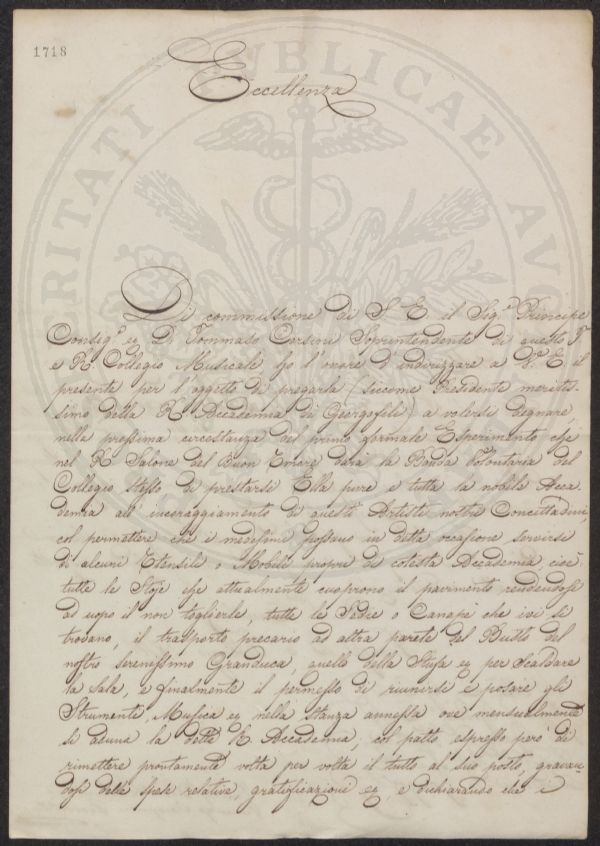 1718
Eccellenza
Di commissione di S. E. il Sig.r Principe
Consig.e &c. D. Tommaso Corsini Soprintendente di questo I.
e R. Collegio Musicale ho l'onore d'indirizzare a V.a E. il
presente per l'oggetto di pregarla (siccome Presidente meritis-
simo della R. Accademia dei Georgofili) a volersi degnare
nella prossima circostanza del primo formale Esperimento che
nel R. Salone del Buon Umore darà la Banda Volontaria del
Collegio stesso di prestarsi Ella pure e tutta la nobile Acca
demia all'incoraggiamento di questi Artisti nostri Concittadini,
col permettere che i medesimi possano in detta occasione servirsi
di alcuni Utensili o Mobili proprj di cotesta Accademia, cioè
tutte le Stoje che attualmente cuoprono il pavimento rendendosi
ad uopo il non toglierle, tutte le Sedie o Canapè che ivi si
trovano, il trasporto precario ad altra parete del Busto del
nostro serenissimo Granduca, quello della Stufa &c per scaldare
la Sala, e finalmente il permesso di riunirsi e posare gli
Strumenti, Musica &c nella stanza annessa ove mensualmente
si aduna la detta R. Accademia; col patto espresso però di
rimettere prontament.e volta per volta il tutto al suo posto, gravan-
dosi delle spese relative, gratificazioni &c, e dichiarando che i
VERITATI PUBLICAE